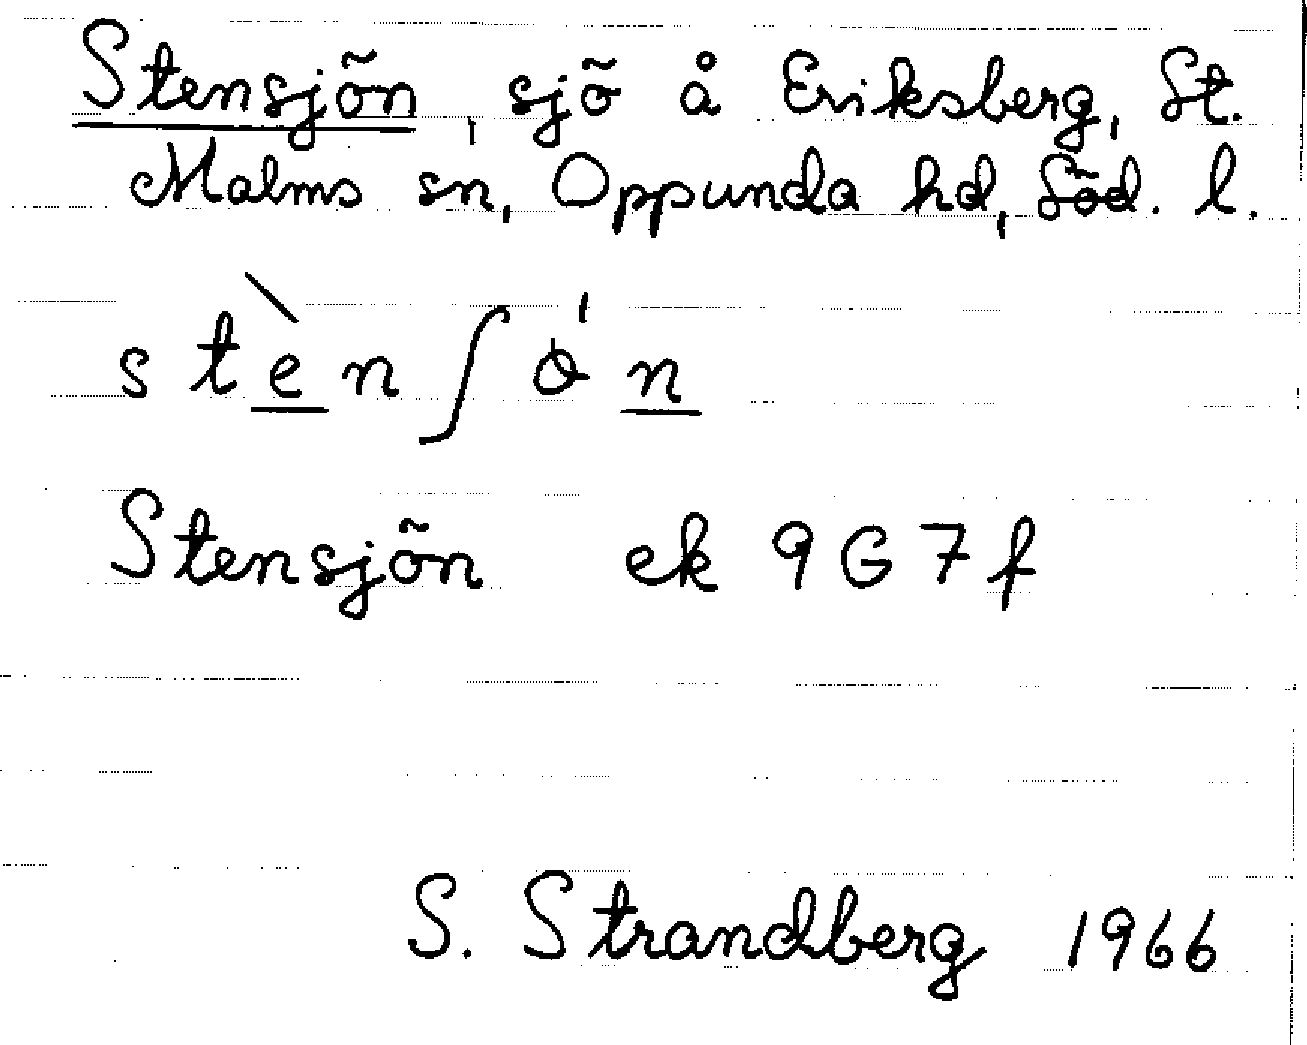 Stensjön, sjö å Eriksberg, St.
Malms sn, Oppunda hd, Söd. l.
stèn ʃ ǿn
Stensjön ek 9G7f
S. Strandberg 1966